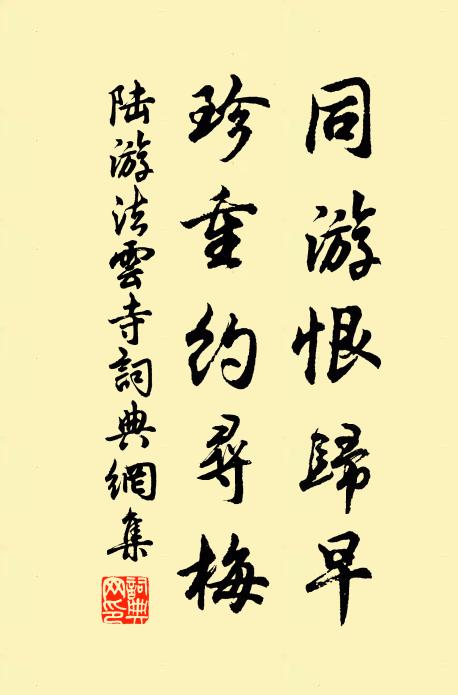 同游恨歸早
珍重約尋梅
陸游法雲寺詞典網集
詞典
网印